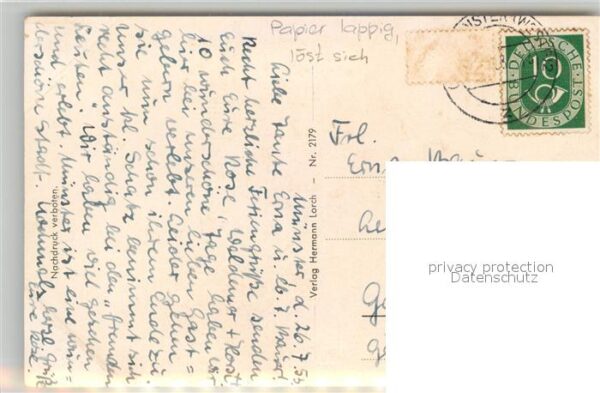 Papier lappig,
löst sich
MÜNSTER (W
DEUTSCHE
10
BUNDESPOST
Frl.
Erna
Münster d. 26.7.53
Liebe Tante Erna u. lb.
Recht herzliche Feriengrüße senden
Euch Eure Rose, Waldemar +
10 wunderschöne Tage haben wir
hier bei unseren lieben Gast=
gebern verlebt. Leider gehen
sie nun schon ihrem Ende zu.
Unser kl. Schatz benimmt sich
recht anständig bei den „fremden
Leuten". Wir haben viel gesehen
und erlebt. Münster ist eine wun=
derschöne Stadt. Nochmals herzl. Grüße
Eure Rose.
Nachdruck verboten.
Verlag Hermann Lorch – Nr. 2179
privacy protection
Datenschutz